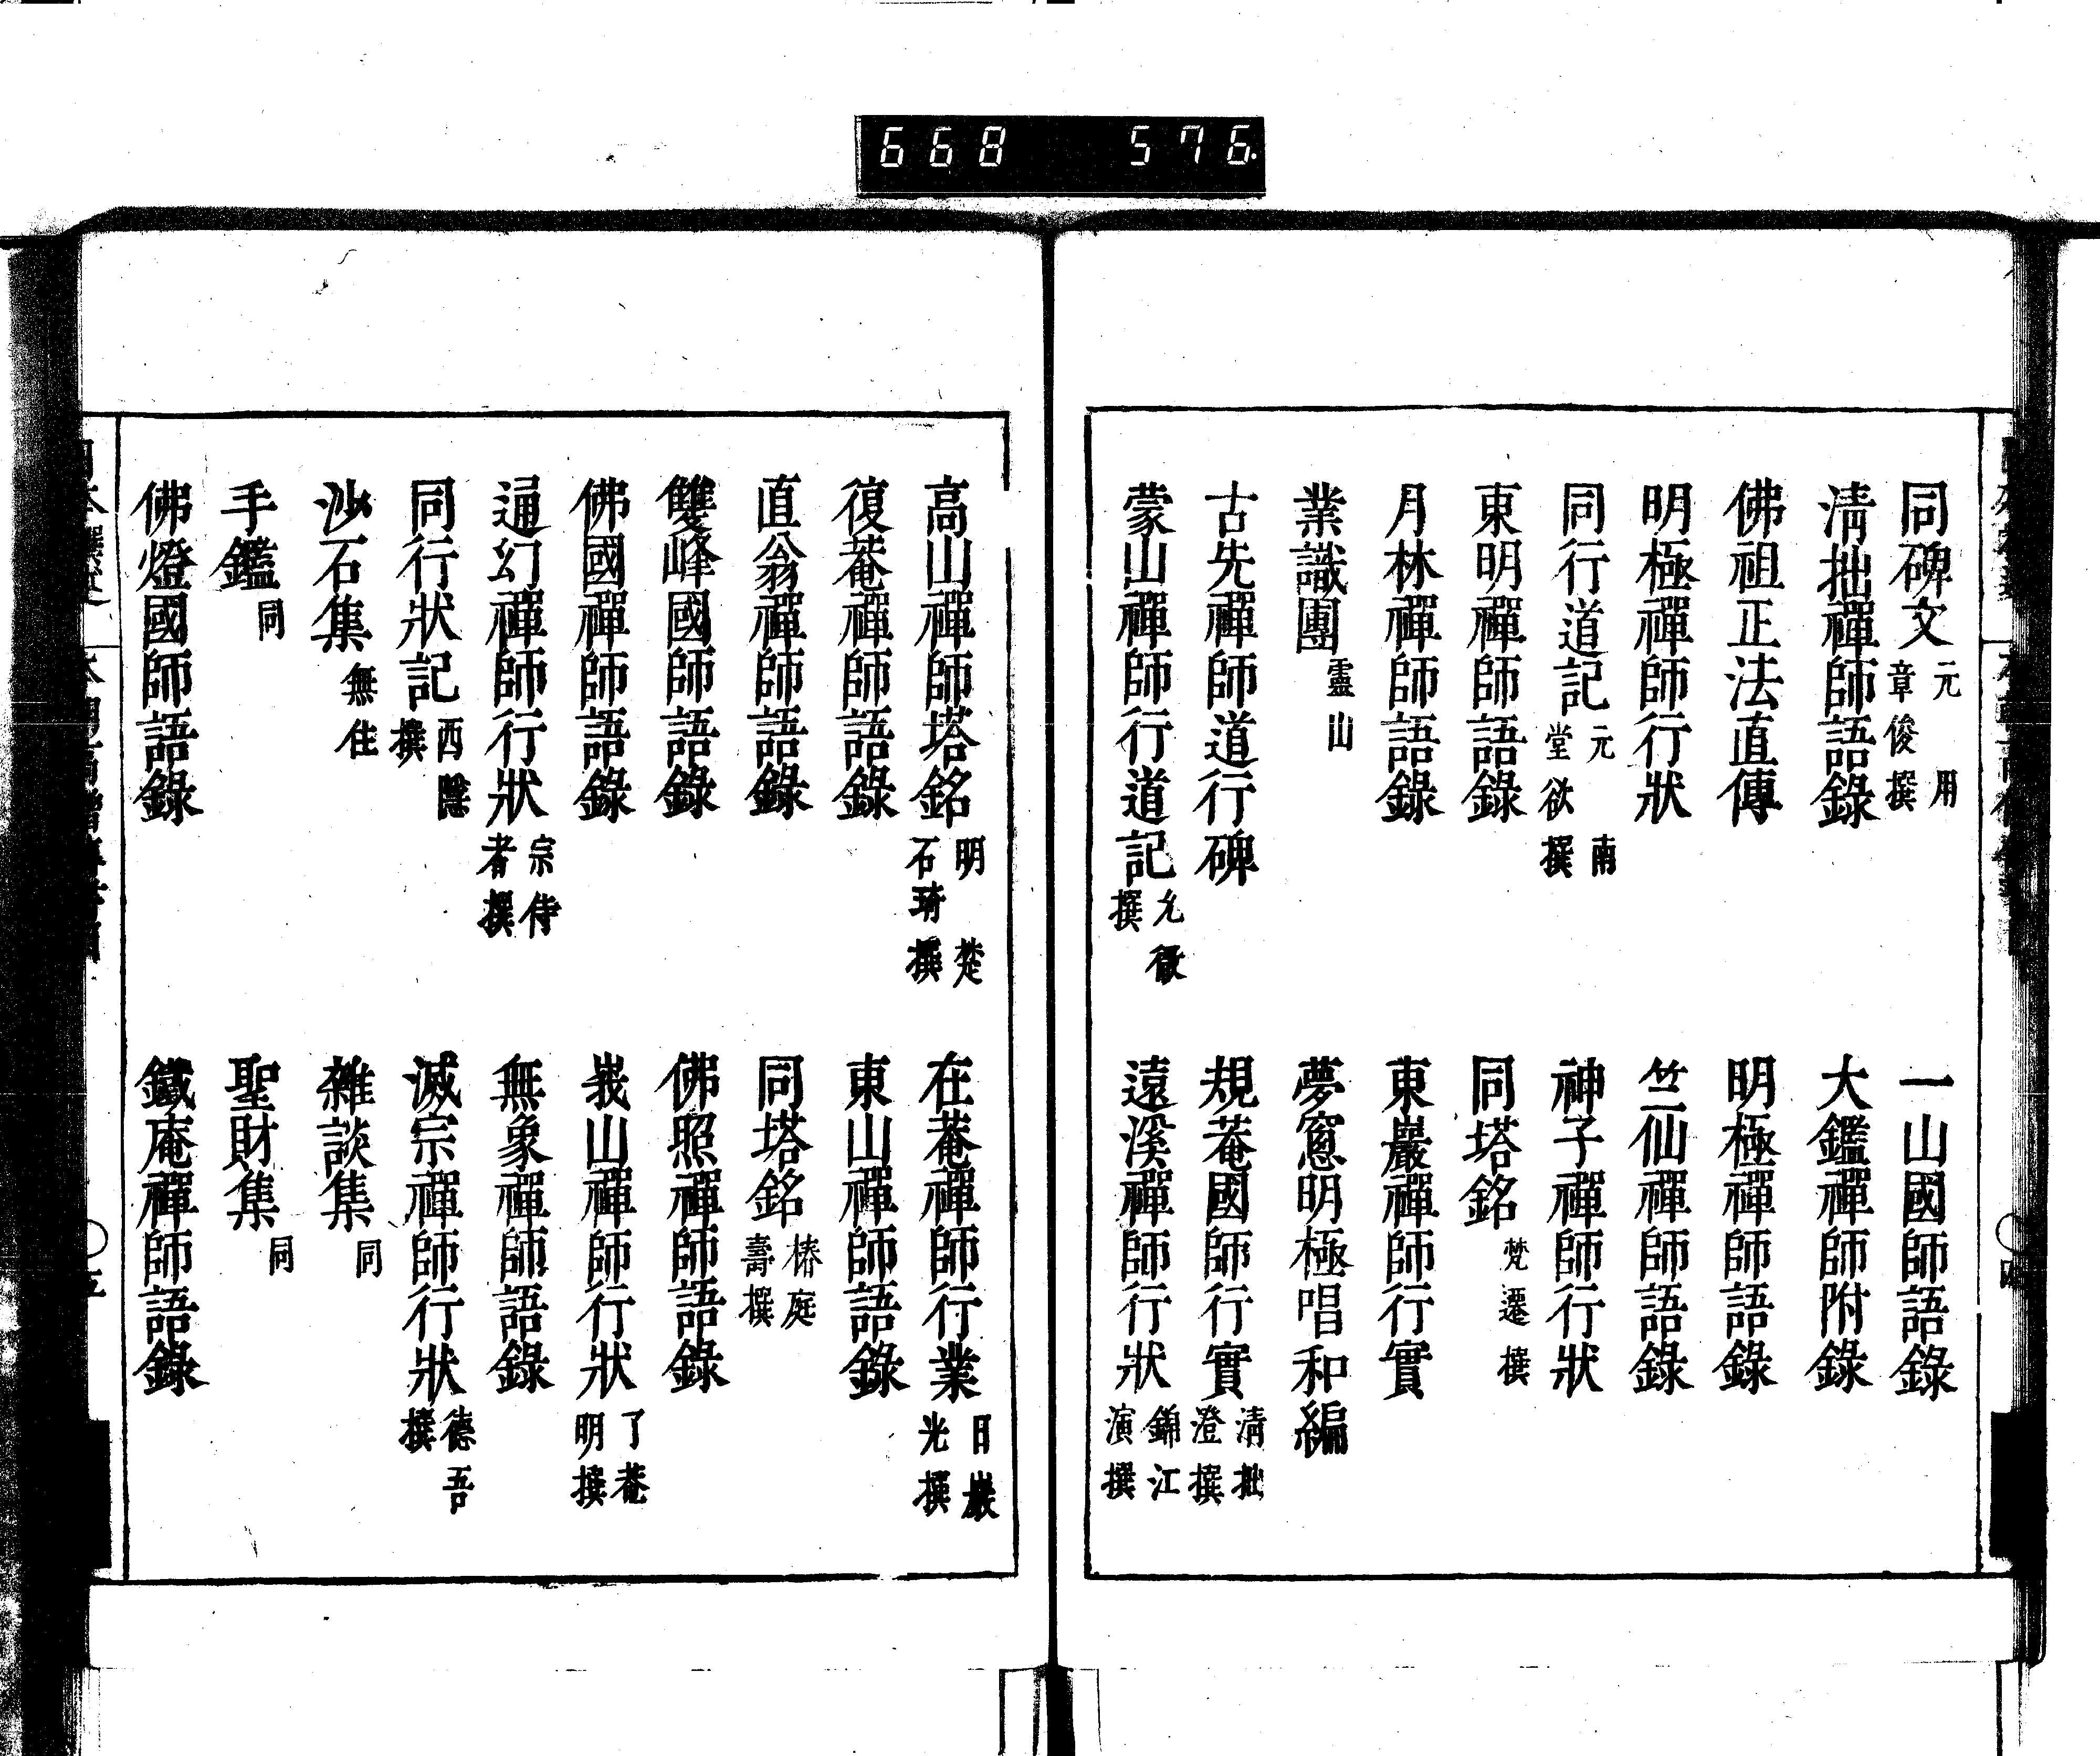 668 576
同碑文 元用章俊撰
一山國師語錄
清拙禪師語錄
大鑑禪師附錄
佛祖正法直傳
明極禪師語錄
明極禪師行狀
竺仙禪師語錄
同行道記 元南堂欲撰
神子禪師行狀
東明禪師語錄
同塔銘 梵遷撰
月林禪師語錄
東巖禪師行實
業識團 靈山
夢窻明極唱和編
古先禪師道行碑
規菴國師行實 清拙澄撰
蒙山禪師行道記 允徹撰
遠溪禪師行狀 錦江演撰
高山禪師塔銘 明楚石琦撰
在菴禪師行業 日巖光撰
復菴禪師語錄
東山禪師語錄
直翁禪師語錄
同塔銘 椿庭壽撰
雙峰國師語錄
佛照禪師語錄
佛國禪師語錄
峩山禪師行狀 了菴明撰
通幻禪師行狀 宗侍者撰
無象禪師語錄
同行狀記 西隱撰
滅宗禪師行狀 德吾撰
沙石集 無住
雜談集 同
手鑑 同
聖財集 同
佛燈國師語錄
鐵庵禪師語錄